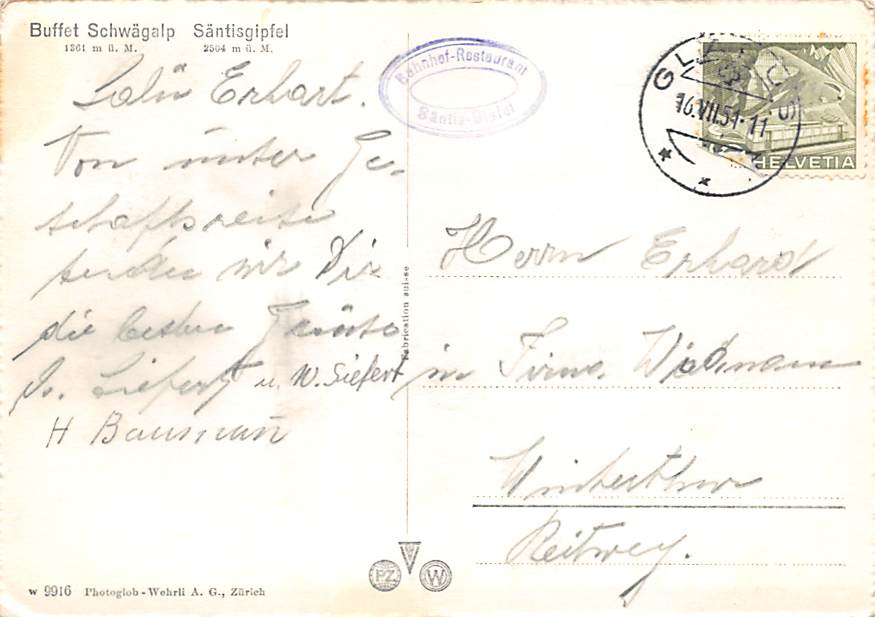 Buffet Schwägalp Säntisgipfel
1361 m ü. M. 2504 m ü. M.
Bahnhof-Restaurant
Säntis-Gipfel
GLARUS
16.VII.51-11
HELVETIA
Salü Erhart.
Von unser Ge-
schaftsreise
senden wir Dir
die besten Grüsse
Siefert u. W. Siefert
H Baumann
Fabrication suisse
Herrn Erhard
in Firma Widmann
Winterthur
Reitweg.
PZ W
w 9916 Photoglob-Wehrli A. G., Zürich